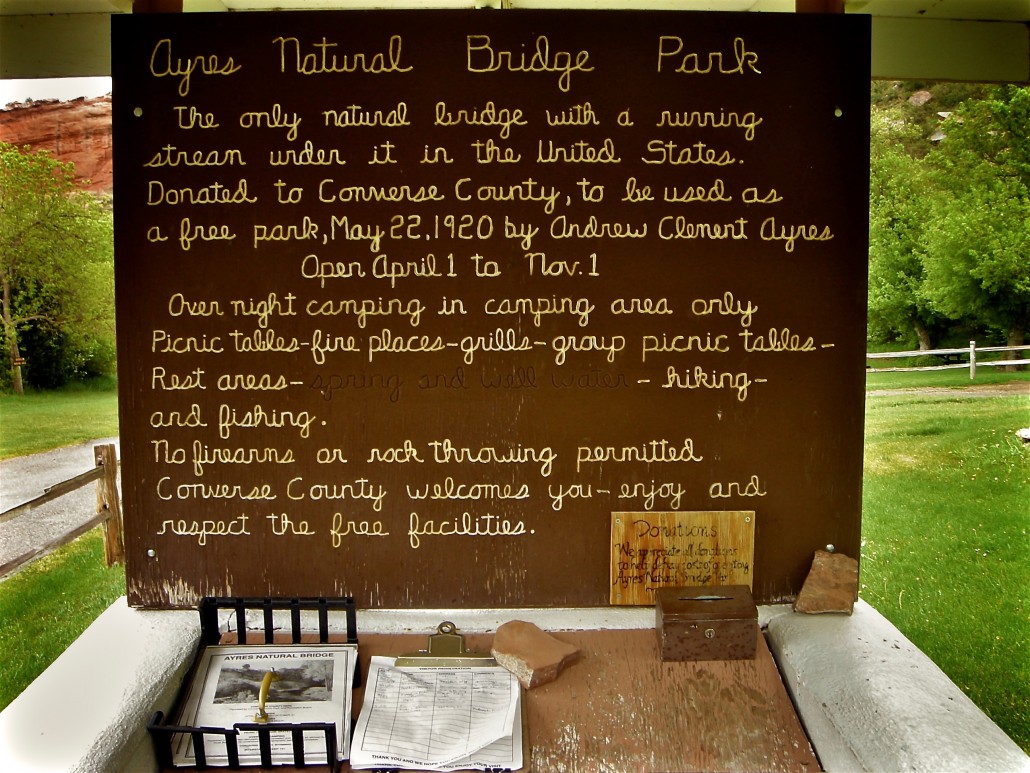 Ayres Natural Bridge Park
The only natural bridge with a running
stream under it in the United States.
Donated to Converse County, to be used as
a free park, May 22, 1920 by Andrew Clement Ayres
Open April 1 to Nov. 1
Over night camping in camping area only
Picnic tables-fire places-grills-group picnic tables-
Rest areas-spring and well water-hiking-
and fishing.
No firearms or rock throwing permitted
Converse County welcomes you-enjoy and
respect the free facilities.
Donations
We appreciate all donations
to help defray
Ayres Natural Bridge
AYRES NATURAL BRIDGE
VISITOR REGISTRATION
THANK YOU AND WE HOPE YOU VISIT